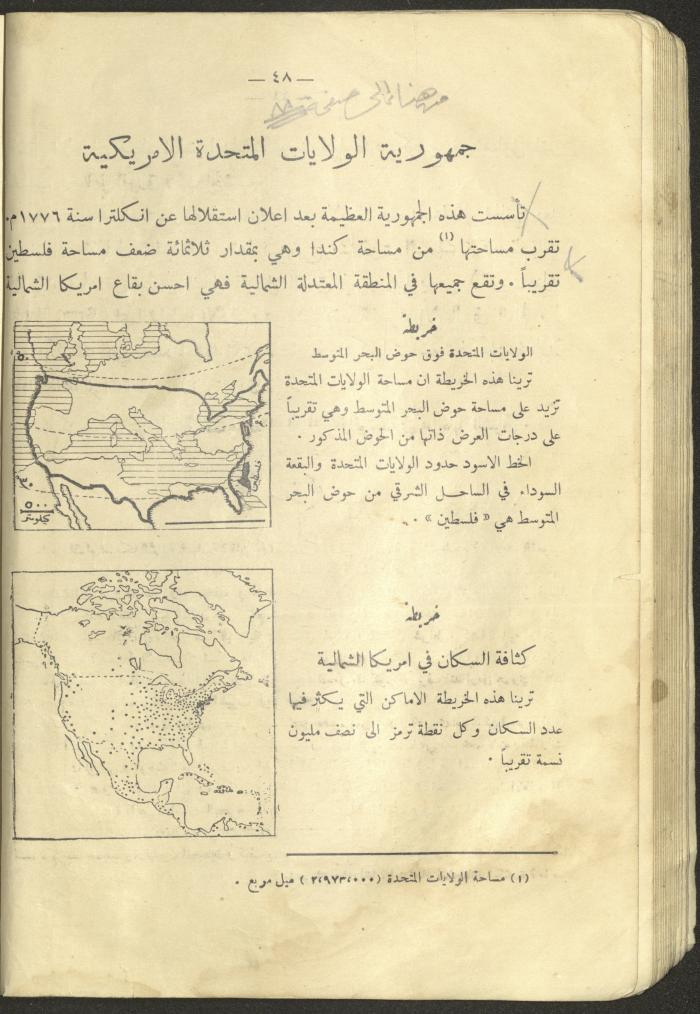 — ٤٨ —
من هنا الى صفحة ٨٨
جمهورية الولايات المتحدة الامريكية
تأسست هذه الجمهورية العظيمة بعد اعلان استقلالها عن انكلترا سنة ١٧٧٦م.
تقرب مساحتها (١) من مساحة كندا وهي بمقدار ثلاثمائة ضعف مساحة فلسطين
تقريباً . وتقع جميعها في المنطقة المعتدلة الشمالية فهي احسن بقاع امريكا الشمالية
خريطة
الولايات المتحدة فوق حوض البحر المتوسط
ترينا هذه الخريطة ان مساحة الولايات المتحدة
تزيد على مساحة حوض البحر المتوسط وهي تقريباً
على درجات العرض ذاتها من الحوض المذكور .
الخط الاسود حدود الولايات المتحدة والبقعة
السوداء في الساحل الشرقي من حوض البحر
المتوسط هي « فلسطين » .
٥٠
٣٠
فلسطين
٥٠٠
كيلومتر
خريطة
كثافة السكان في امريكا الشمالية
ترينا هذه الخريطة الاماكن التي يكثر فيها
عدد السكان وكل نقطة ترمز الى نصف مليون
نسمة تقريباً .
(١) مساحة الولايات المتحدة (٢،٩٧٣،٠٠٠) ميل مربع .